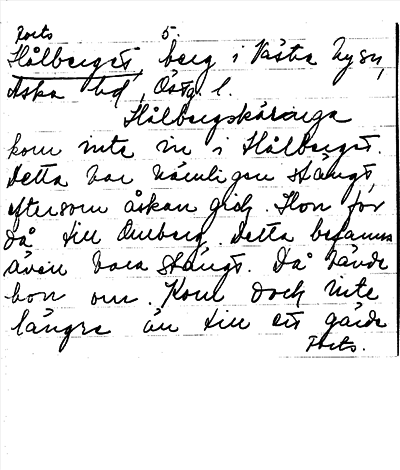 Forts 5.
Hålberget, berg i Västra Ny sn,
Aska hd, Östg. l.
Hålbergskäringa
kom inte in i Hålberget.
Detta var nämligen stängt,
eftersom åskan gick. Hon för
då till Omberg. Detta befanns
även vara stängt. Då vände
hon om. Kom dock inte
längre än till ett gärde
Forts.